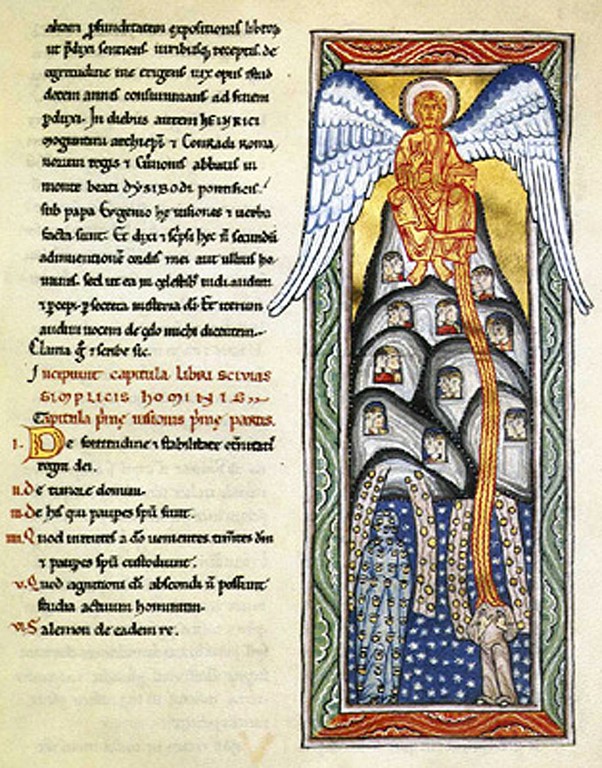 altam ꝓfunditatem expositionis libroꝝ
ut p̄dixi sentiens. uiribusq; receptis de
egritudine me erigens uix opus istud
decem annis consummans ad finem
ꝑduxi. In diebus autem HEINRICI
moguntini archiep̄i ⁊ Conradi roma,
norum regis ⁊ Cunonis abbatis in
monte beati DYSIBODI pontificis.
sub papa Eugenio he uisiones ⁊ uerba
facta sunt. Et dixi ⁊ sc̄psi hec n̄ secundū
adinuentionem cordis mei aut ullius ho,
minis. sed ut ea in celestib; uidi. audiui
⁊ ꝑcepi. ꝑ secreta misteria di. Et iterum
audiui uocem de celo michi dicentem.
Clama g̊ ⁊ scribe sic.
Incipiunt capitula libri scivias
simplicis hominis
Capitula p̄me uisionis p̄me partis.
i. De fortitudine ⁊ stabilitate et̄nitatis
regni dei.
ii. De timore domini.
iii. De his qui paupes sp̄u sunt.
iiii. Quod uirtutes a do uenientes tim̄tes dm̄
⁊ paupes sp̄u custodiunt.
v. Quod agnitioni di abscondi n̄ possunt
studia actuum hominum.
vi. Salemon de eadem re.